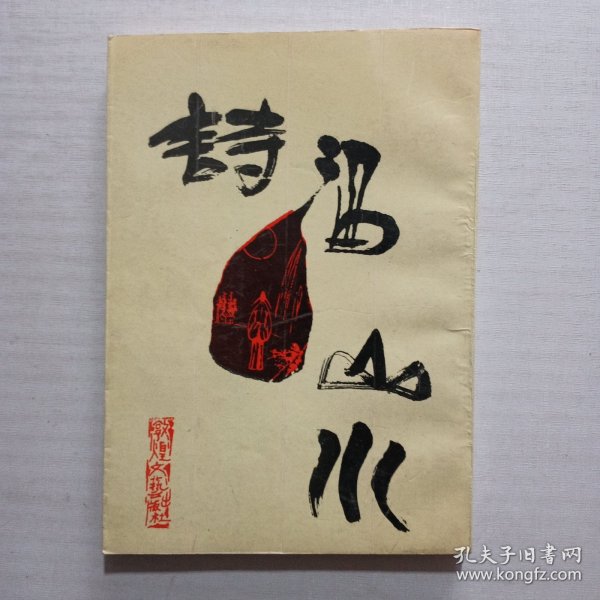 山水
詩
敦煌文藝出版社
孔夫子旧書网
www.kongfz.com